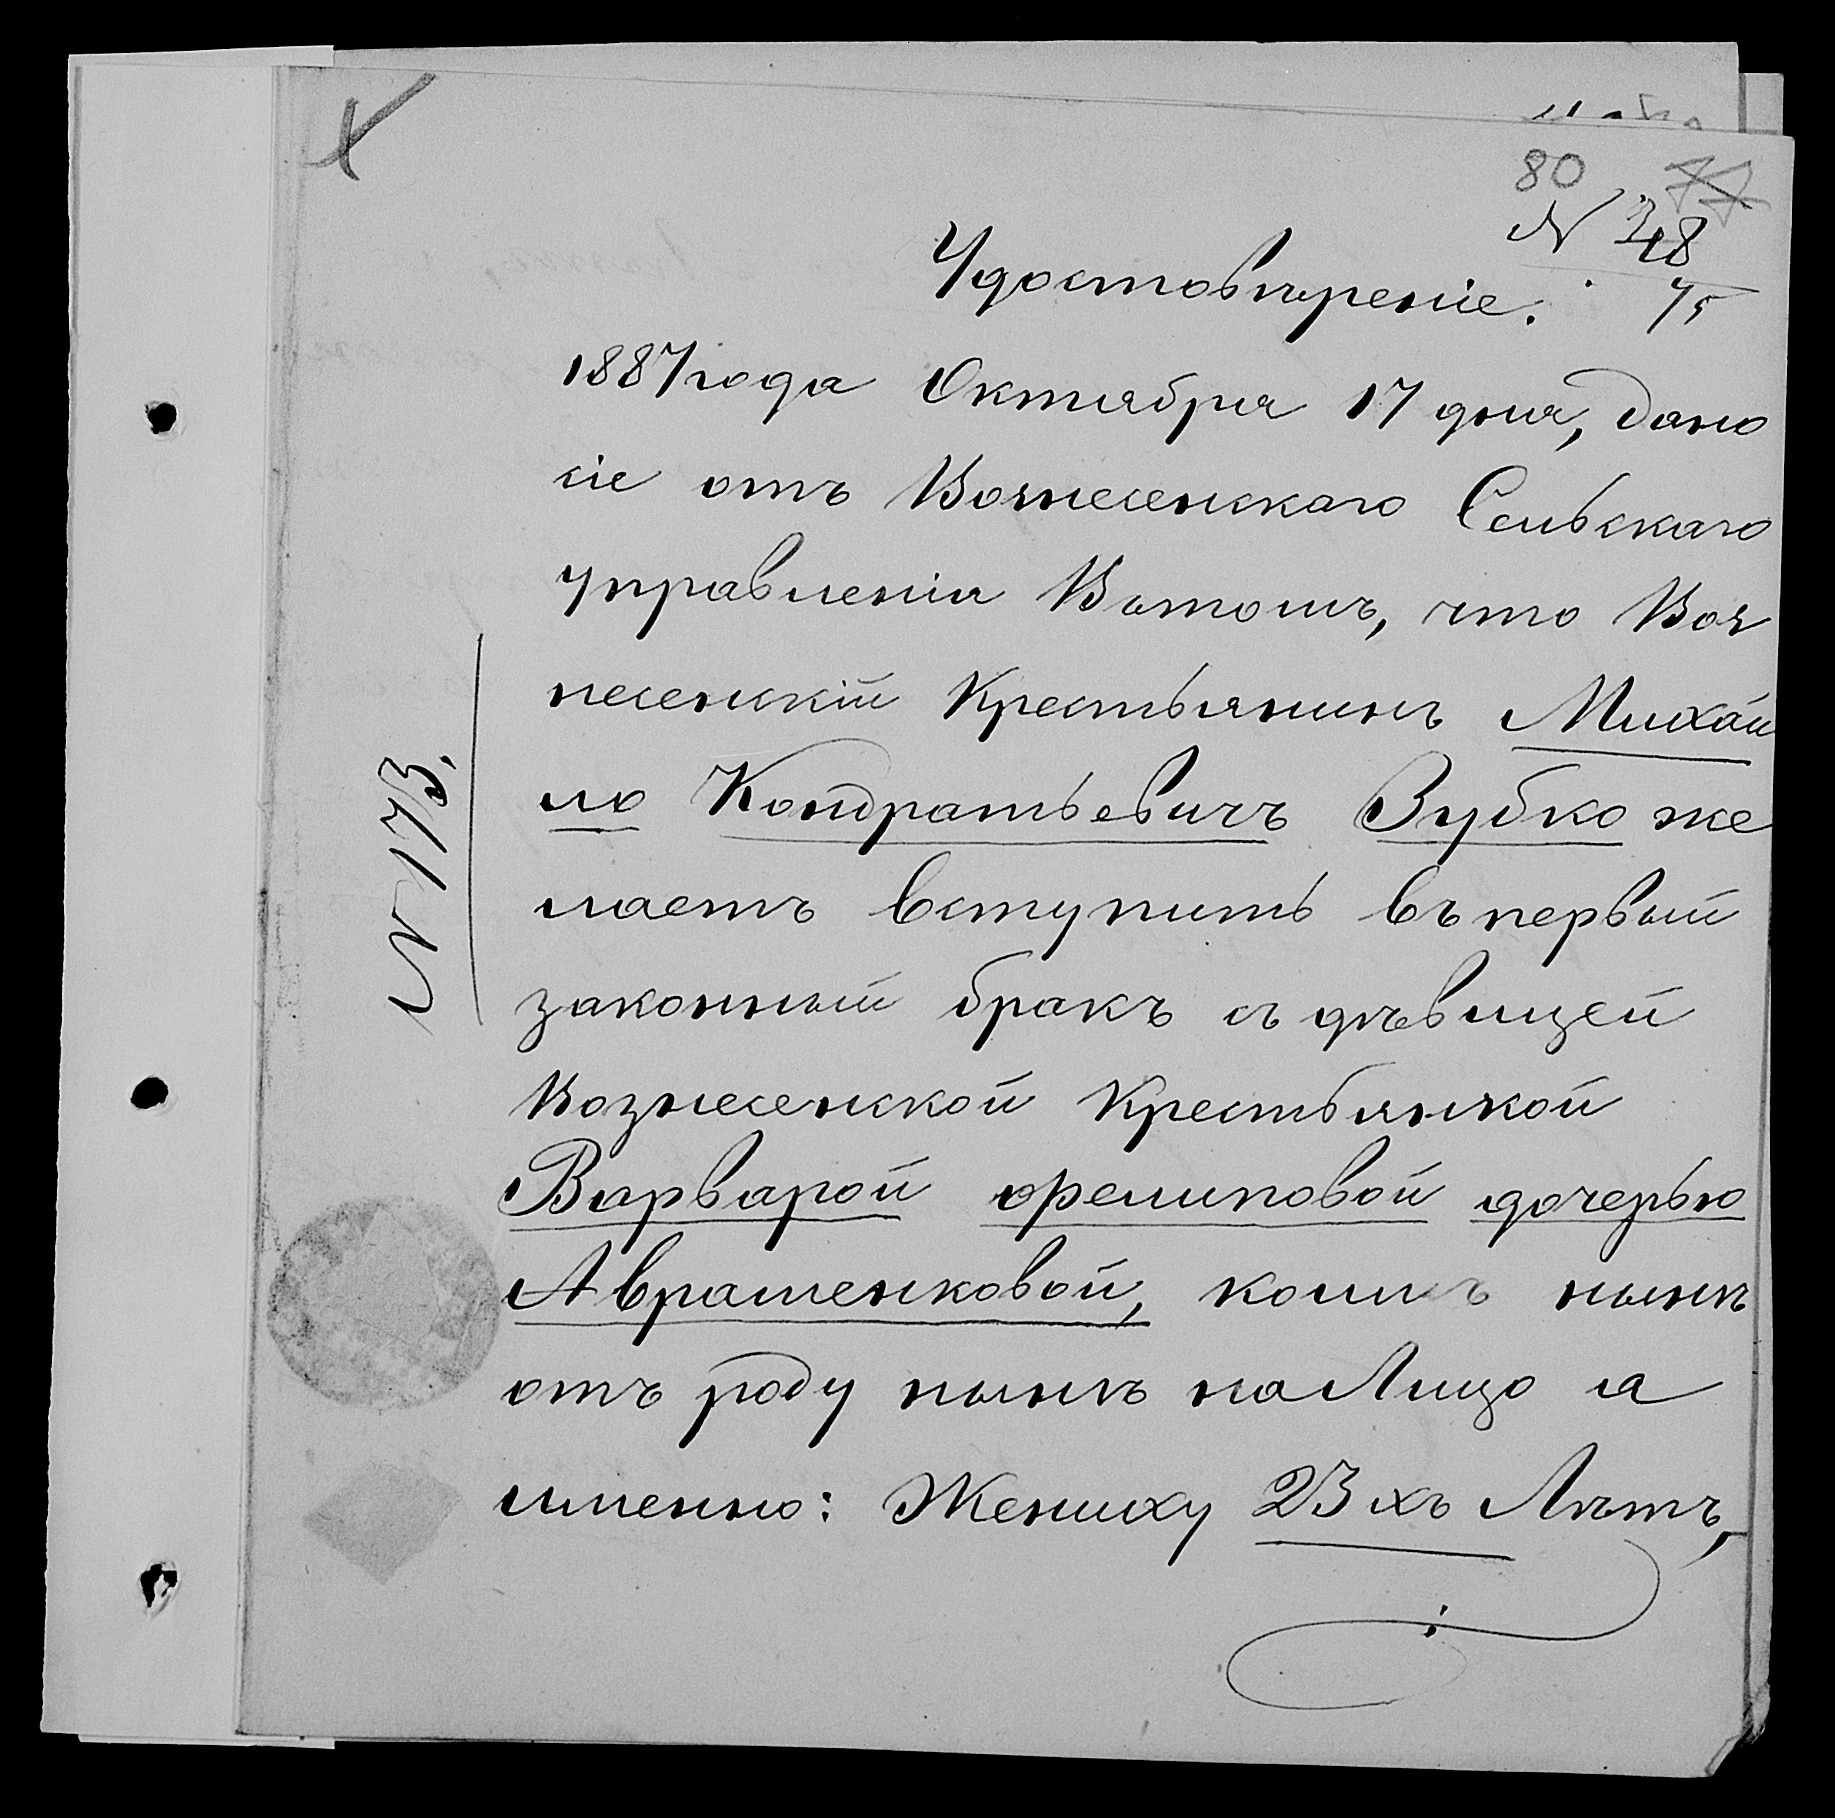 80 77
N 348
75
Удостовѣреніе.
1887 года Октября 17 дня, дано
сіе отъ Вознесенскаго Сельскаго
управленія Вътомъ, что Воз
несенскій Крестьянинъ Михаи
ло Кондратьевичъ Зубко же
лаетъ вступить въ первый
законный бракъ съ дѣвицей
Вознесенской Крестьянкой
Варварой
дочерью
Авраменковой, коимъ нынѣ
отъ роду нынѣ на Лицо а
именно: Жениху 23 хъ Лѣтъ,
N 173.